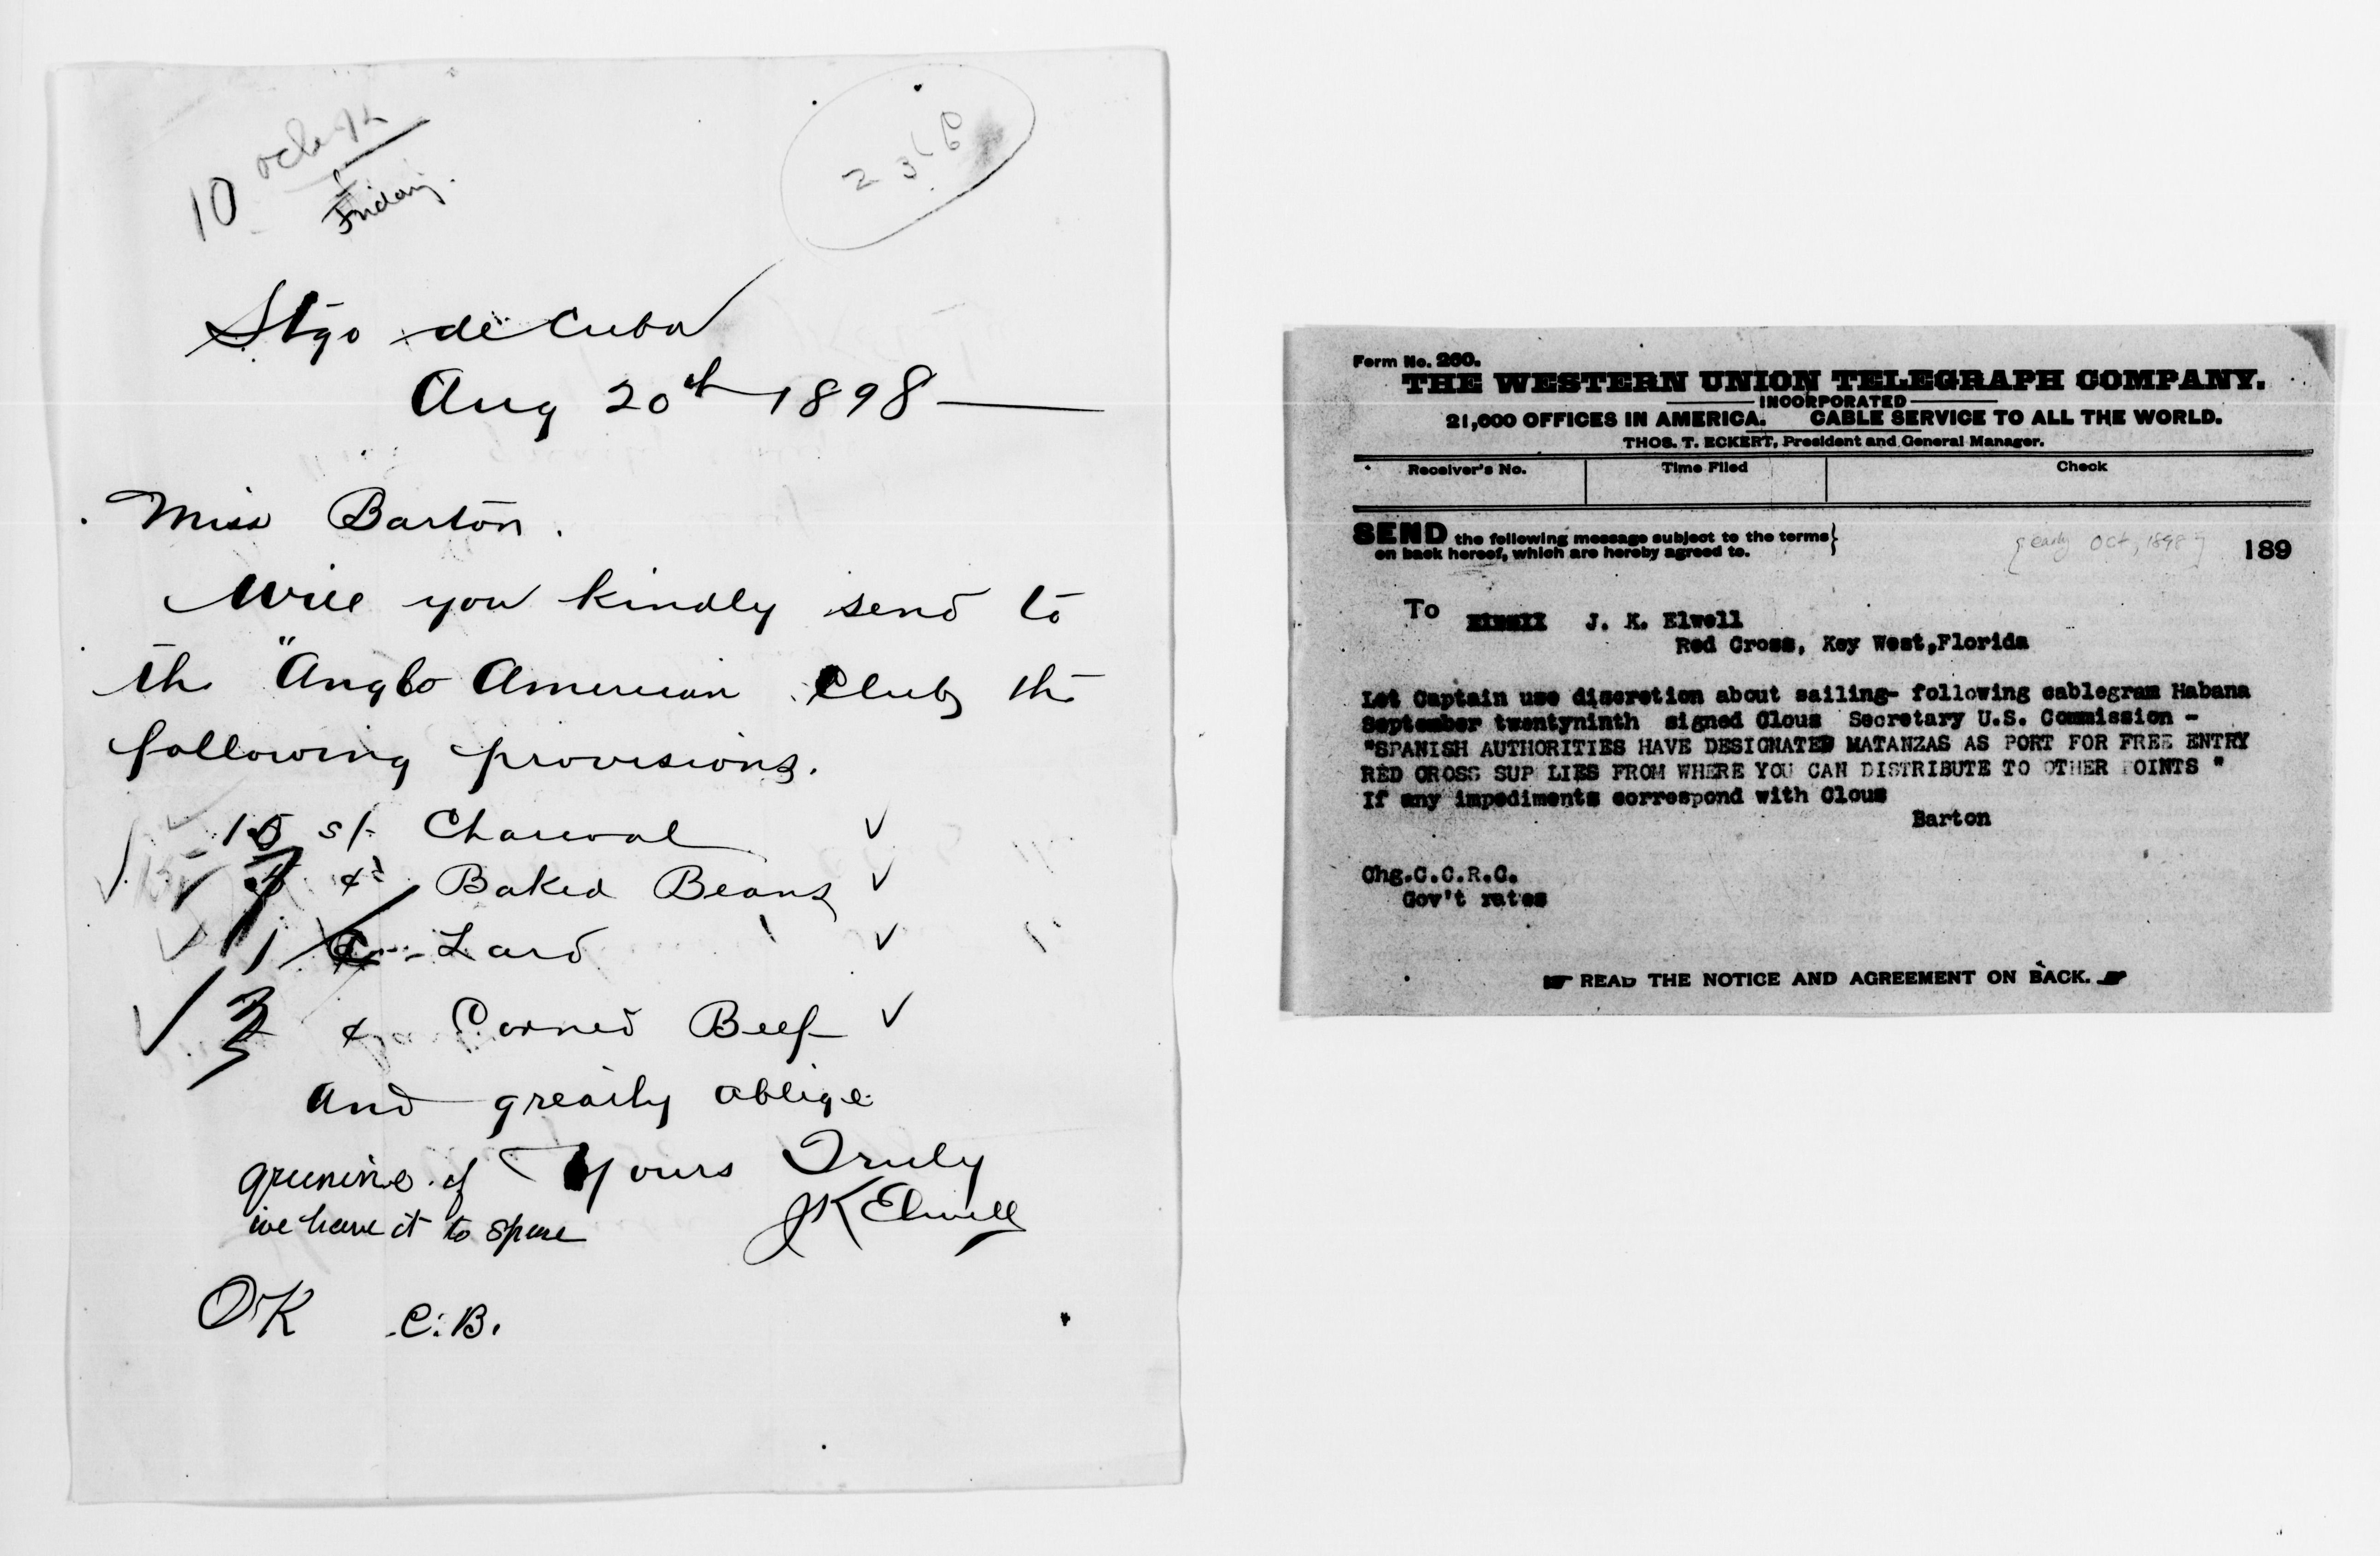 10 oclock
Friday.
Stgo de Cuba
Aug 20th 1898
Miss Barton.
Will you kindly send to
the "Anglo American Club, the
following provisions.
15 s/- Charcoal
Baked Beans
1 Lard
Corned Beef
and greatly oblige
Yours Truly
JK Elwell
quinine if
we have it to spare
OK C.B.
Form No. 260.
THE WESTERN UNION TELEGRAPH COMPANY.
INCORPORATED
21,000 OFFICES IN AMERICA. CABLE SERVICE TO ALL THE WORLD.
THOS. T. ECKERT, President and General Manager.
Receiver's No. Time Filed Check
SEND the following message subject to the terms
on back hereof, which are hereby agreed to.
[early Oct, 1898] 189
To J. K. Elwell
Red Cross, Key West,Florida
Let Captain use discretion about sailing- following cablegram Habana
September twentyninth signed Clous Secretary U.S. Commission -
"SPANISH AUTHORITIES HAVE DESIGNATED MATANZAS AS PORT FOR FREE ENTRY
RED CROSS SUP LIES FROM WHERE YOU CAN DISTRIBUTE TO OTHER POINTS "
If any impediments correspond with Clous
Barton
Chg.C.C.R.C.
Gov't rates
READ THE NOTICE AND AGREEMENT ON BACK.